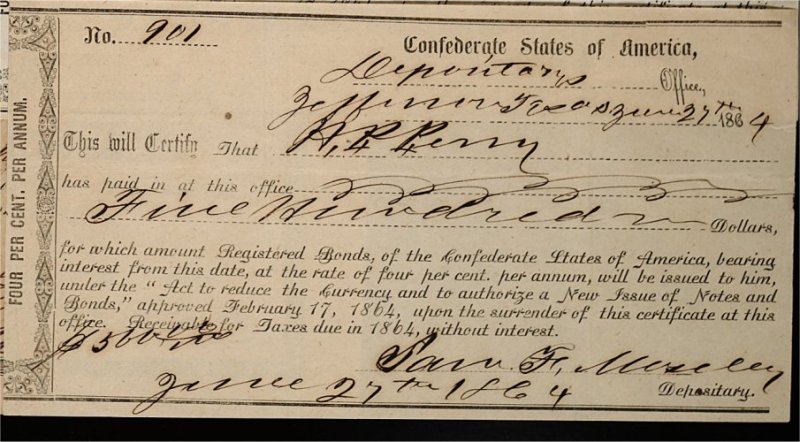 No. 901
Confederate States of America,
Depositary's Office,
Jefferson Texas June 27th 1864
This will Certify That H. P. Perry
has paid in at this office
Five Hundred Dollars,
for which amount Registered Bonds, of the Confederate States of America, bearing
interest from this date, at the rate of four per cent. per annum, will be issued to him,
under the "Act to reduce the Currency and to authorize a New Issue of Notes and
Bonds," approved February 17, 1864, upon the surrender of this certificate at this
office. Receivable for Taxes due in 1864, without interest.
$500
Sam. F. Moseley
June 27th 1864 Depositary.
FOUR PER CENT. PER ANNUM.